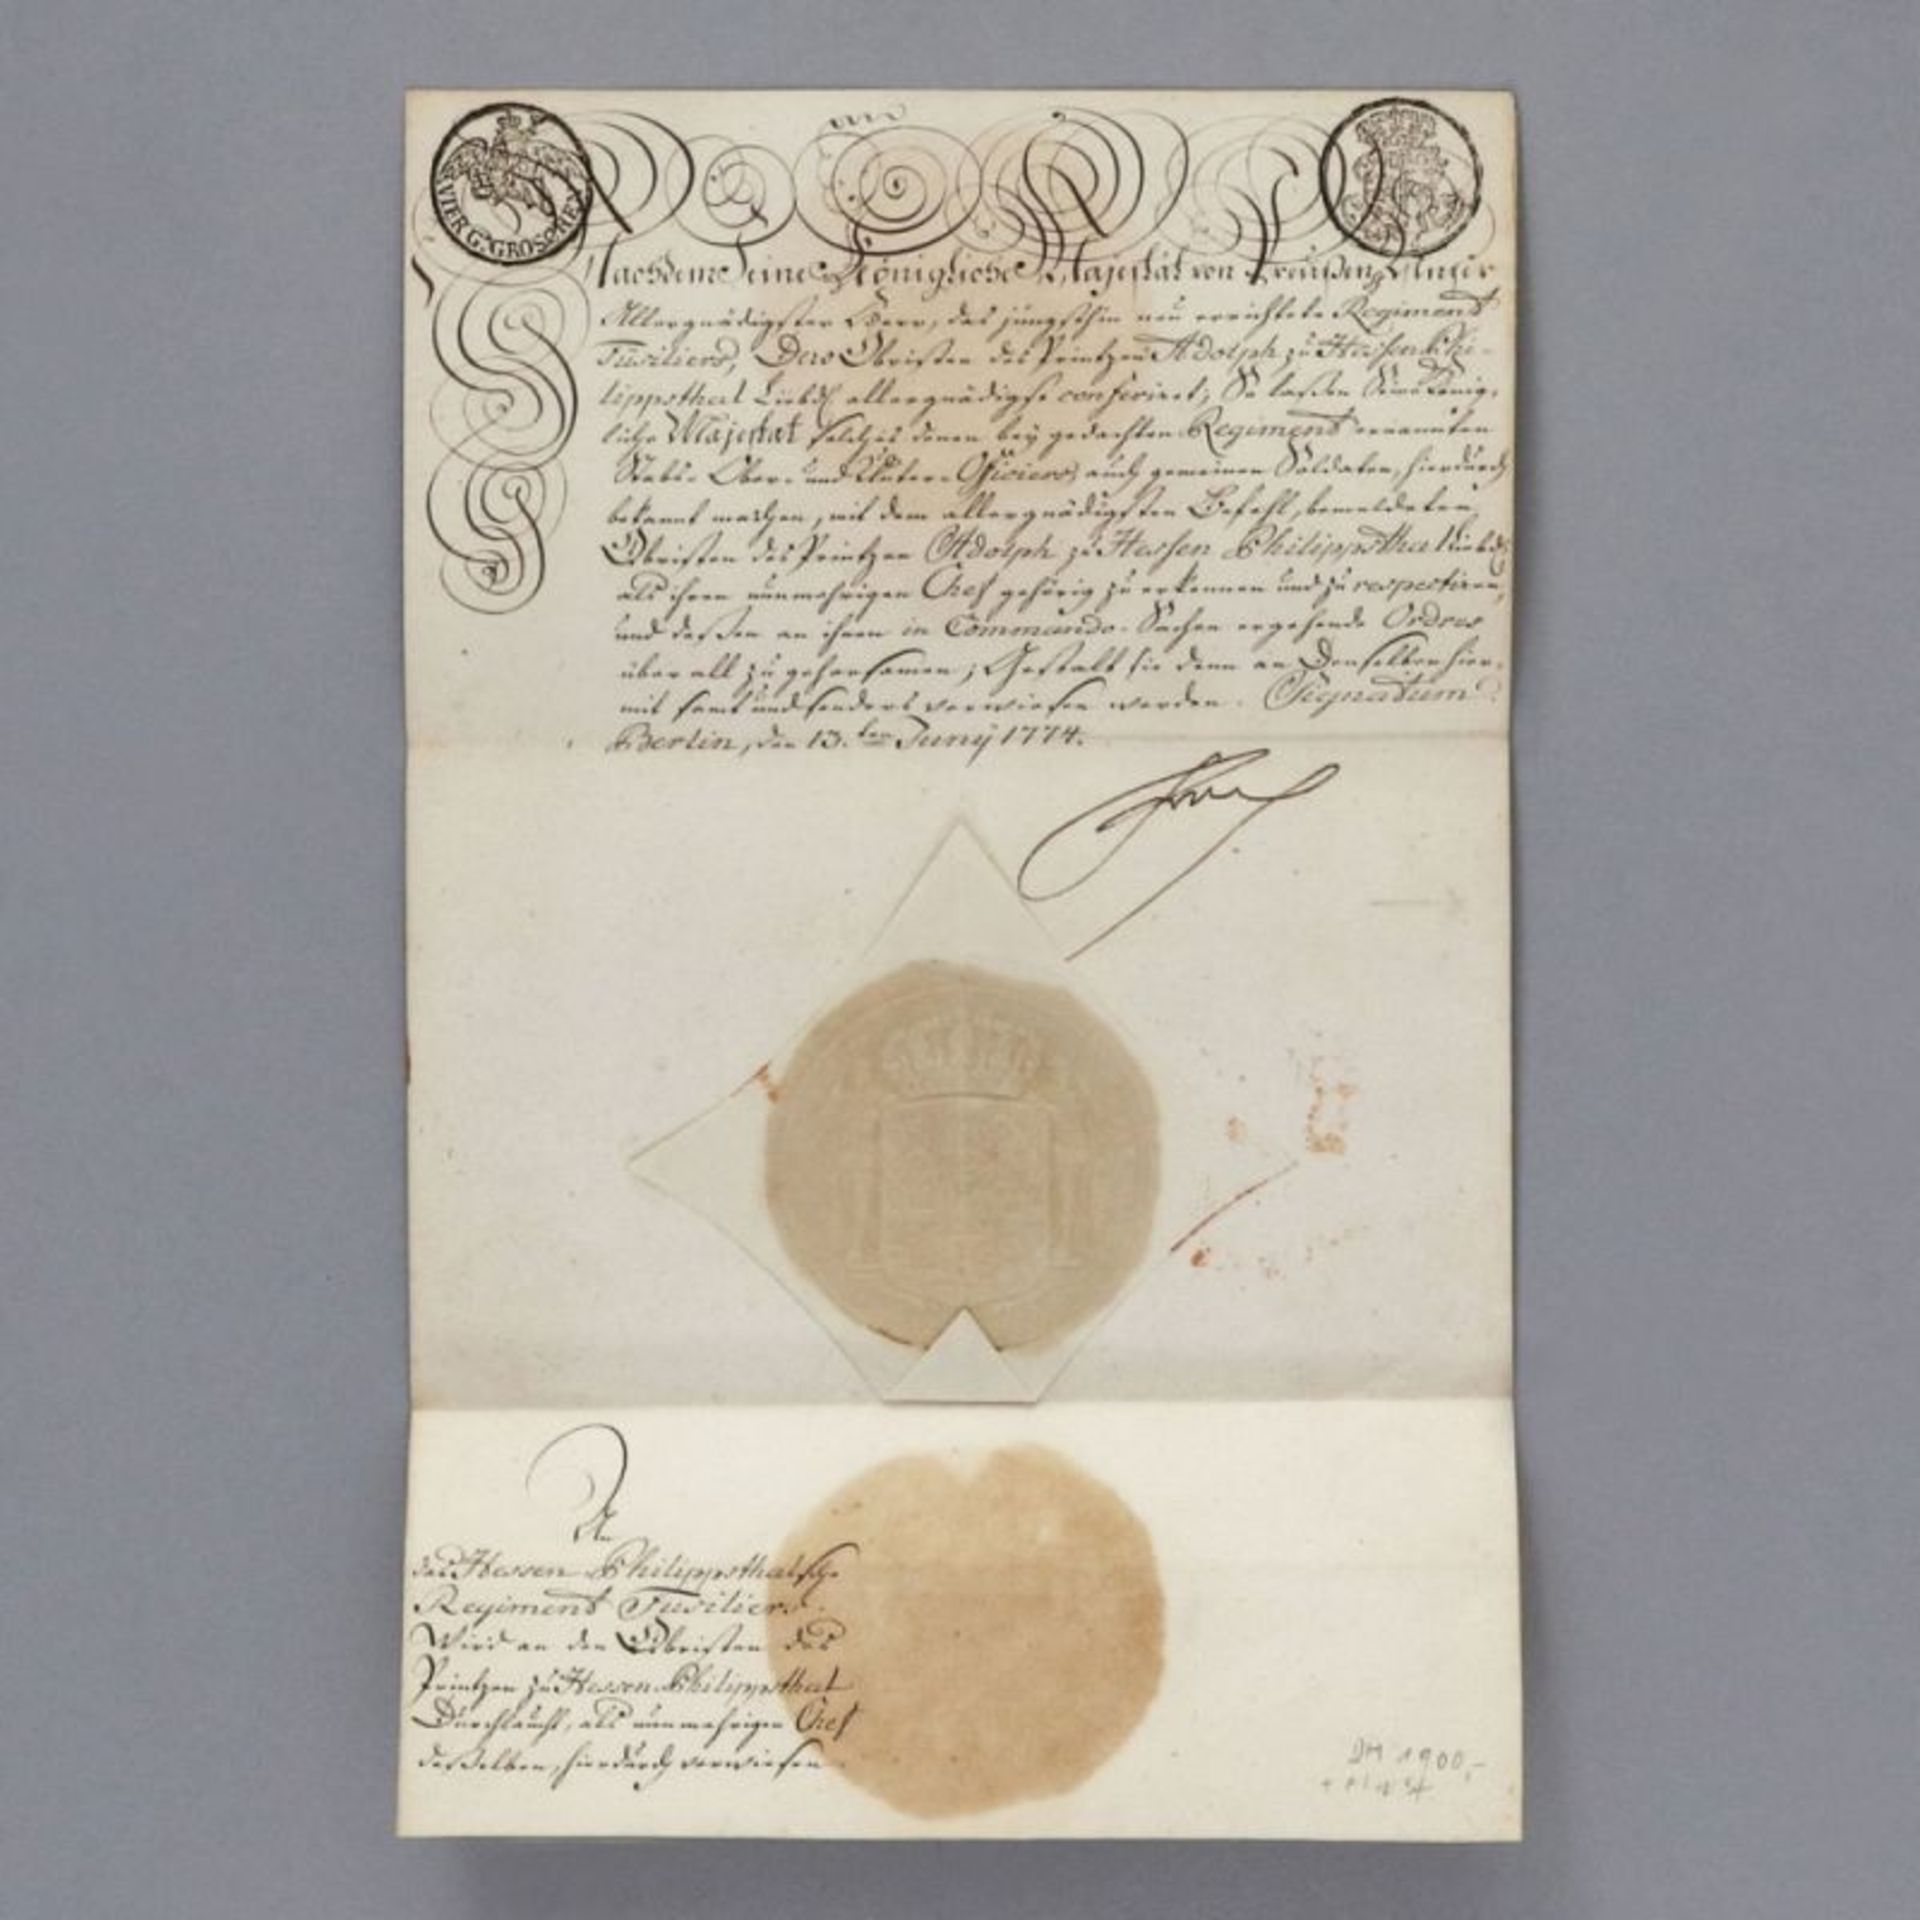 VIER G. GROSCHEN
Nachdem Seine Königliche Majestät von Preußen, Unser
Allergnädigster Herr, das jüngsthin neu errichtete Regiment
Fusiliers, Dero Obristen des Printzen Adolph zu Hessen Phi-
lippsthal Liebd. allergnädigst conferiret; So laßen Seine König-
liche Majestät solches denen bey gedachten Regiment ernannten
Stabs- Ober- und Unter-Officiers, auch gemeinen Soldaten, hierdurch
bekannt machen, mit dem allergnädigsten Befehl, bemeldeten
Obristen des Printzen Adolph zu Hessen Philippsthal Liebd.
als ihren nunmehrigen Chef gehörig zu erkennen und zu respectiren,
und deßen an ihnen in Commando-Sachen ergehende Ordres
überall zu gehorsamen; Gestalt sie denn an Denselben hier-
mit samt und sonders verwiesen werden. Signatum
Berlin, den 13.ten Juny 1774.
An
das Hessen Philippsthalsche
Regiment Fusiliers.
Wird an den Obristen des
Printzen zu Hessen Philippsthal
Durchlaucht, als nunmehrigen Chef
deßelben, hierdurch verwiesen.
DM 1900,-
+ MwSt